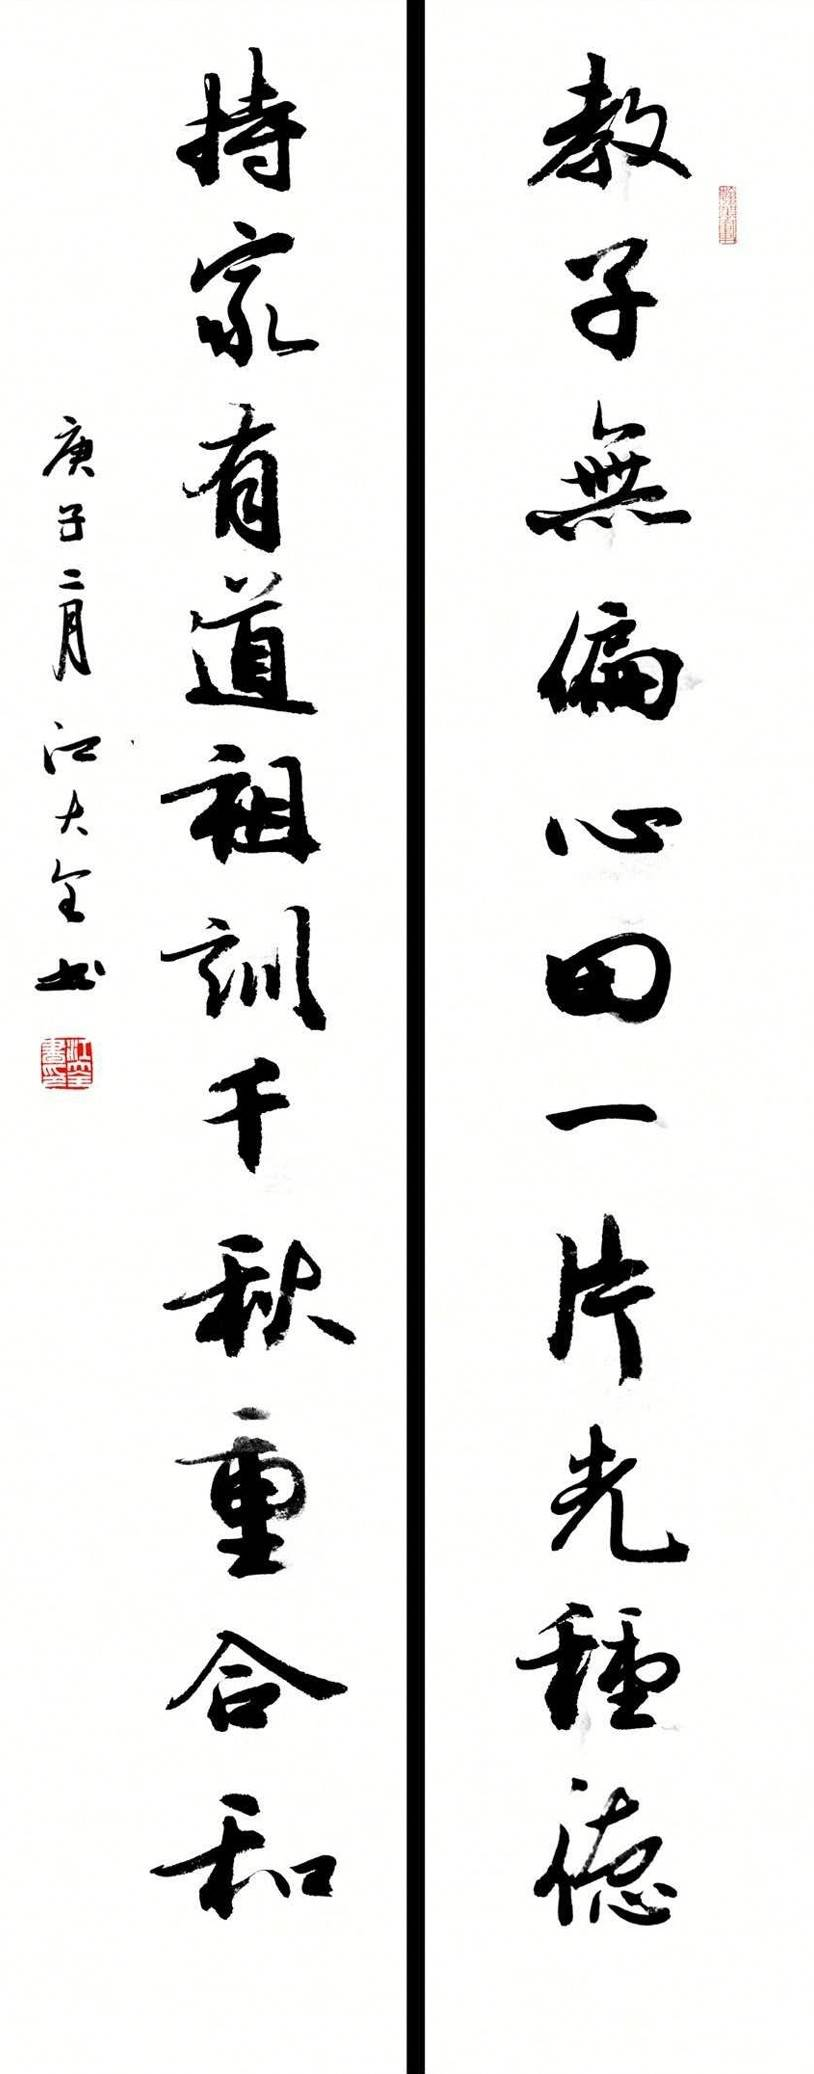 教子無偏心田一片光種德
持家有道祖訓千秋重合和
庚子二月江大全书